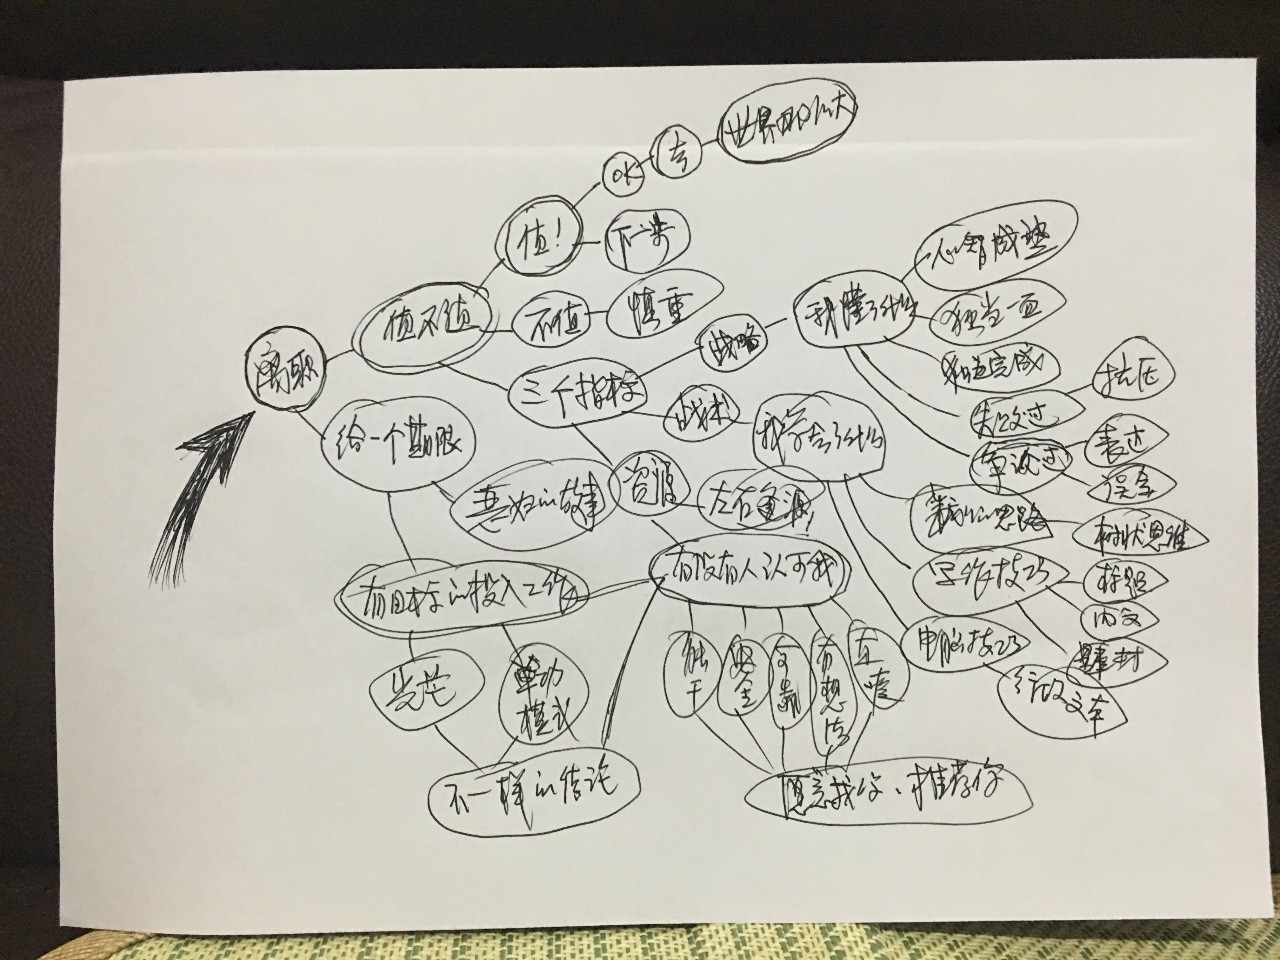 世界那么大
OK
去
值！
下一步
值不值
不值
慎重
离职
三个指标
战略
我懂了什么
心智成熟
独当一面
独立完成
失败过
抗压
争论过
表达
误会
给一个期限
战术
我学会了什么
资源
左右逢源！
策划的思路
树状思维
写作技巧
标题
内文
素材
电脑技巧
有没有人认可我
能干
安全
可靠
有想法
愿意找你、推荐你
有目标的投入工作
主动
模式
不一样的结论